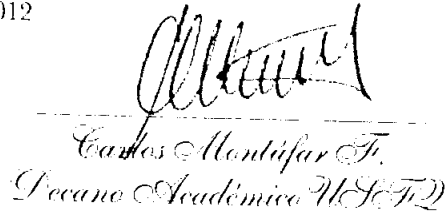 012
Carlos Montúfar F.
Decano Académico USFQ